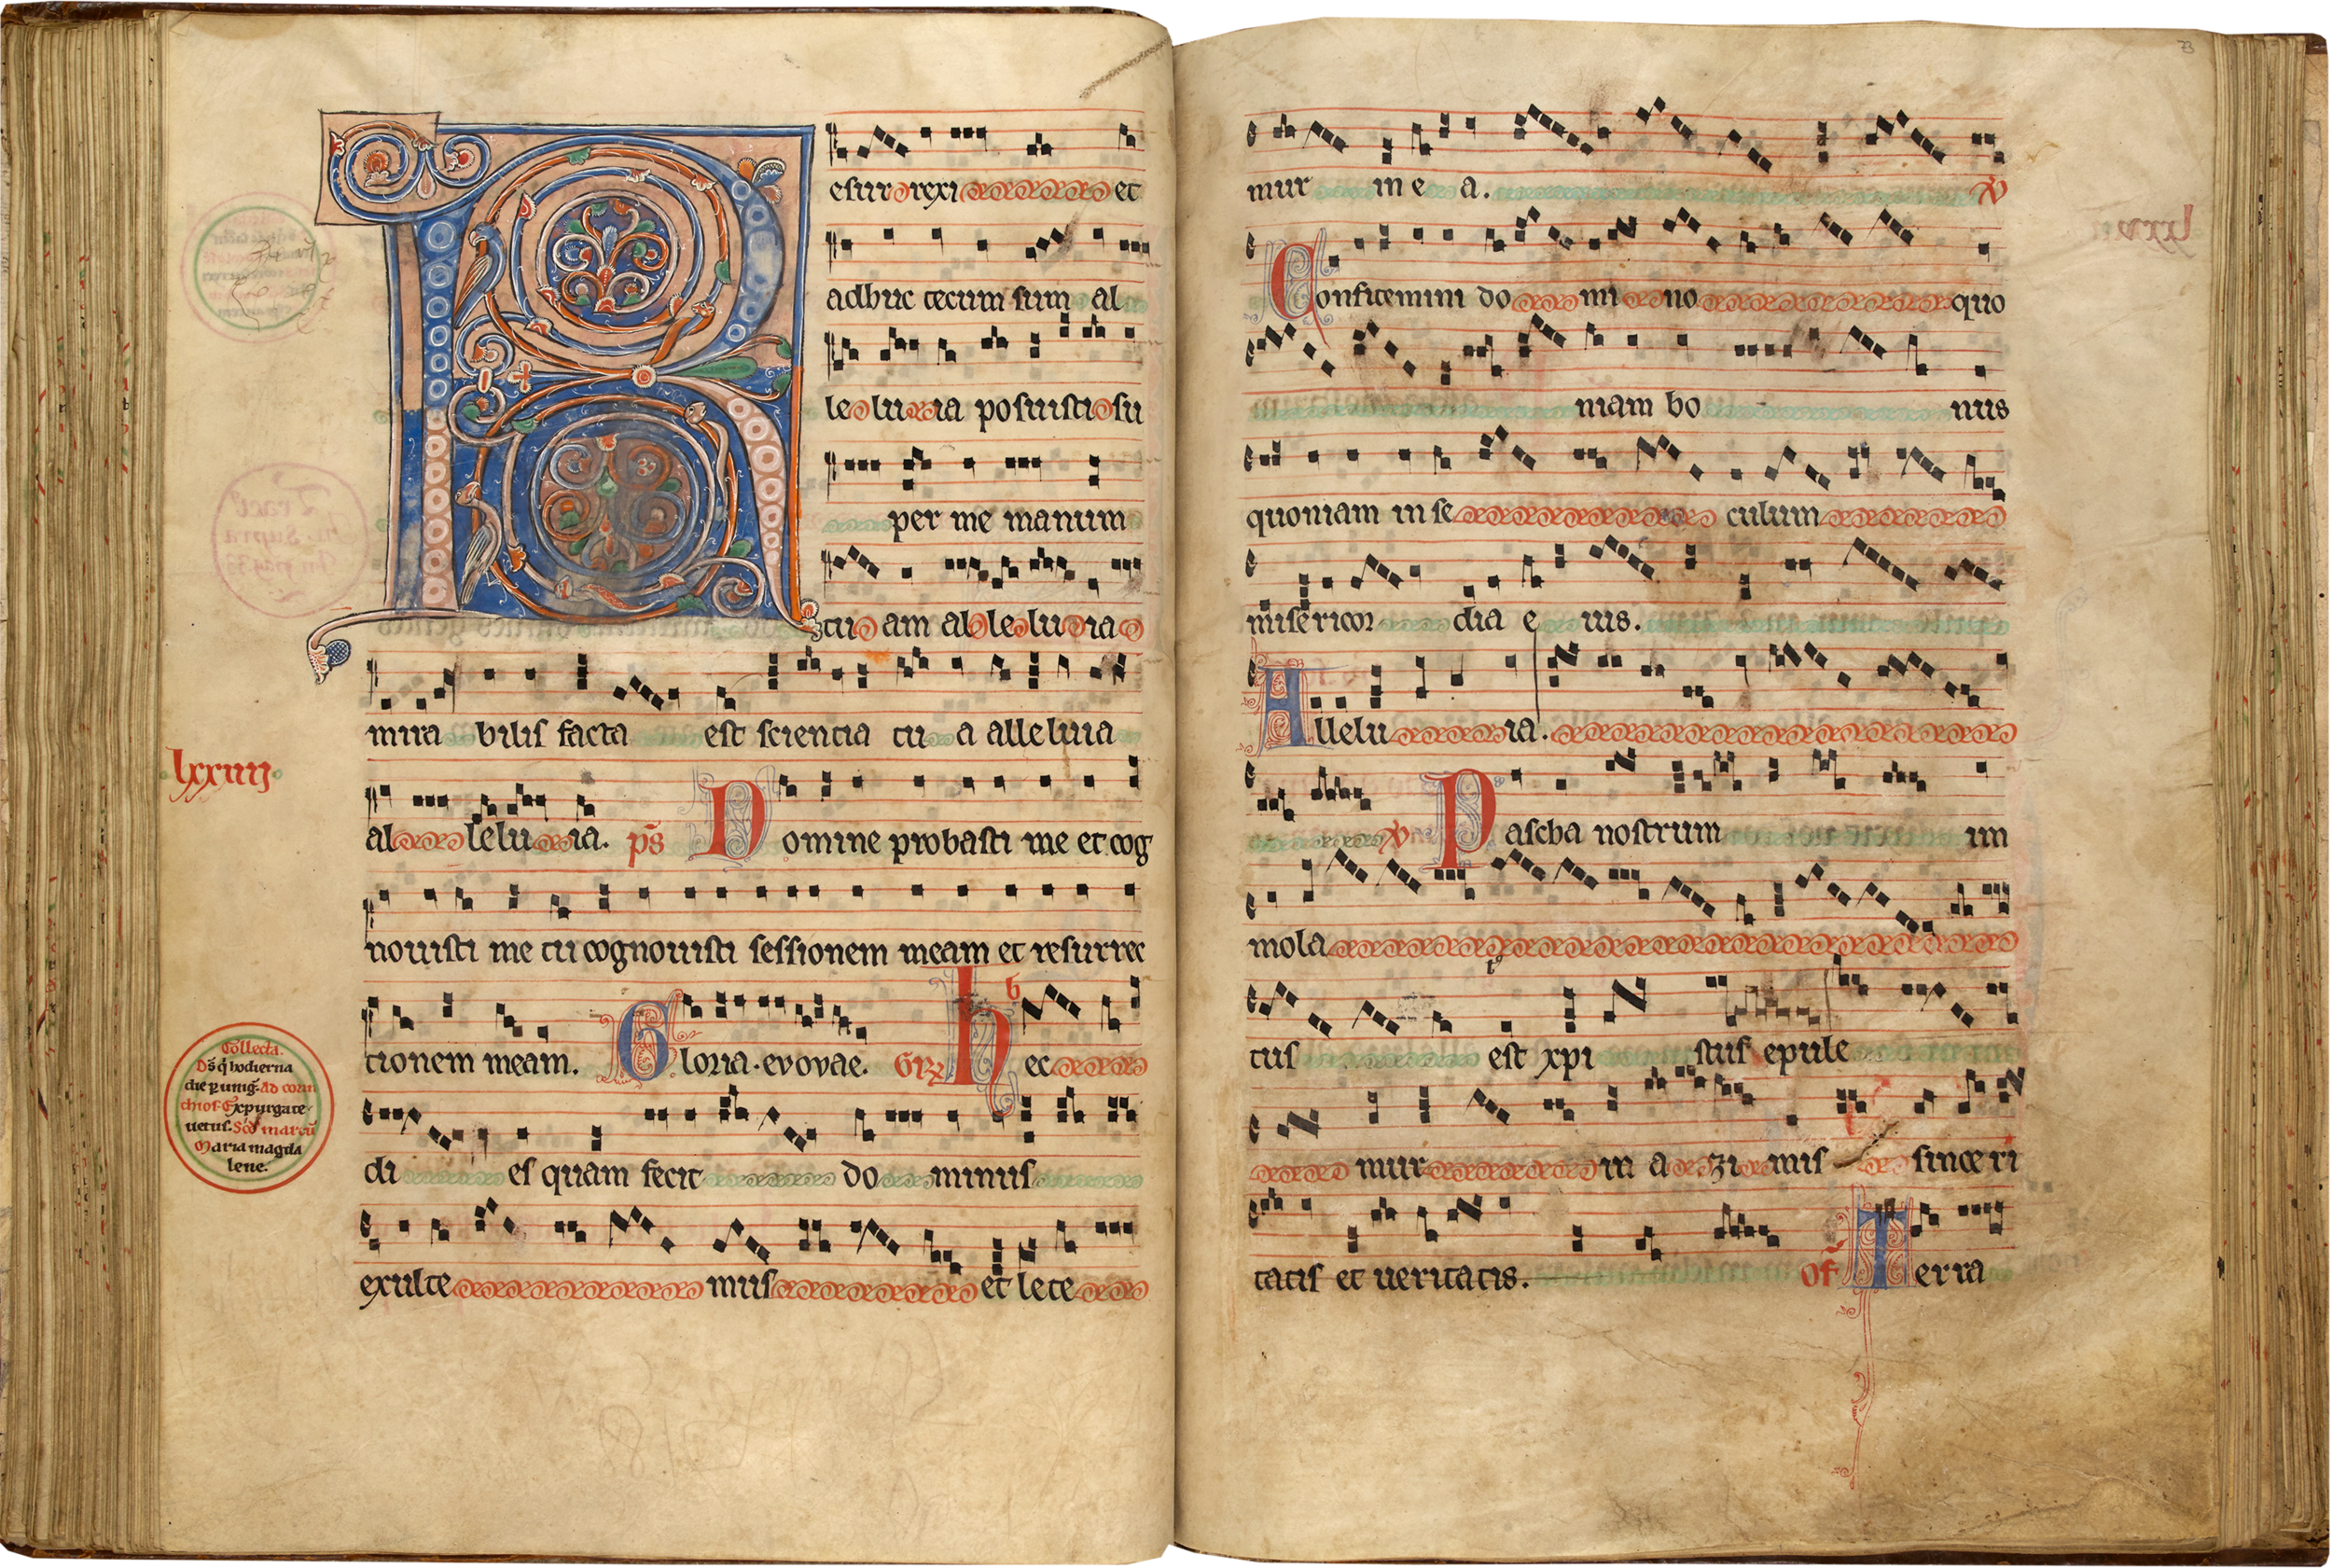 R
esurrexi et
adhuc tecum sum al
leluia posuisti su
per me manum
tuam alleluia
mirabilis facta est scientia tua alleluia
lxxiiij
alleluia. ps Domine probasti me et cog
novisti me tu cognouisti sessionem meam et resurrec
tionem meam. Gloria. evovae. Gr hec
b
dies quam fecit dominus
exultemus et lete
Collecta.
Ds q hodierna
die p unig. Ad corin
thios. Expurgate
uetus. Scd marcu
Maria magda
lene.
73
mur in ea. V
Confitemini domino quo
niam bonus
quoniam in seculum
misericordia eius.
Alleluia.
V Pascha nostrum im
mola
tus est xpistus epule
mur in azimis sinceri
tatis et ueritatis. Of Terra